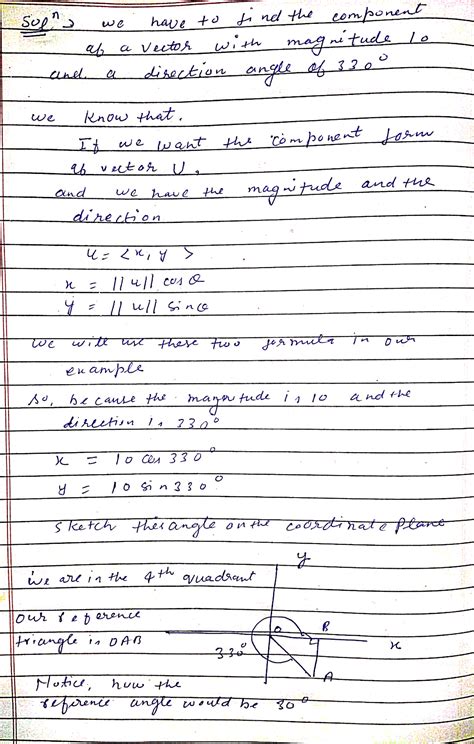 Solⁿ → we have to find the component
of a vector with magnitude 10
and a direction angle of 330°
we know that.
If we want the component form
of vector U,
and we have the magnitude and the
direction
u = <x, y>
x = ||u|| cosθ
y = ||u|| sinθ
we will use these two formula in our
example
So, because the magnitude is 10 and the
direction is 330°
x = 10 cos 330°
y = 10 sin 330°
sketch this angle on the coordinate plane
y
we are in the 4th quadrant
our reference
triangle is OAB
O
B
x
330°
A
Notice, how the
reference angle would be 30°